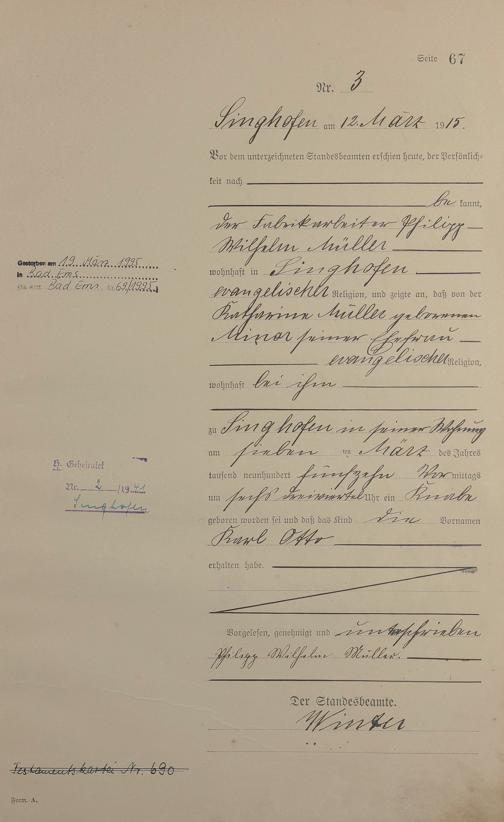 Seite 67
Nr. 3
Singhofen am 12. März 1915.
Vor dem unterzeichneten Standesbeamten erschien heute, der Persönlich-
keit nach
be kannt,
der Fabrikarbeiter Philipp
Wilhelm Müller
wohnhaft in Singhofen
evangelischer Religion, und zeigte an, daß von der
Katharine Müller geborenen
Minor seiner Ehefrau
evangelischer Religion,
wohnhaft bei ihm
zu Singhofen in seiner Wohnung
am sieben ten März des Jahres
tausend neunhundert fünfzehn Vor mittags
um sechs dreiviertel Uhr ein Knabe
geboren worden sei und daß das Kind die Vornamen
Karl Otto
erhalten habe.
Vorgelesen, genehmigt und unterschrieben
Philipp Wilhelm Müller.
Der Standesbeamte.
Winter
Gestorben am 19. März 1995
in Bad Ems
Bad Ems Nr. 69/1995
H. Geheiratet
Nr. 2 /1941
Singhofen
Testamentskartei Nr. 690
Form. A.